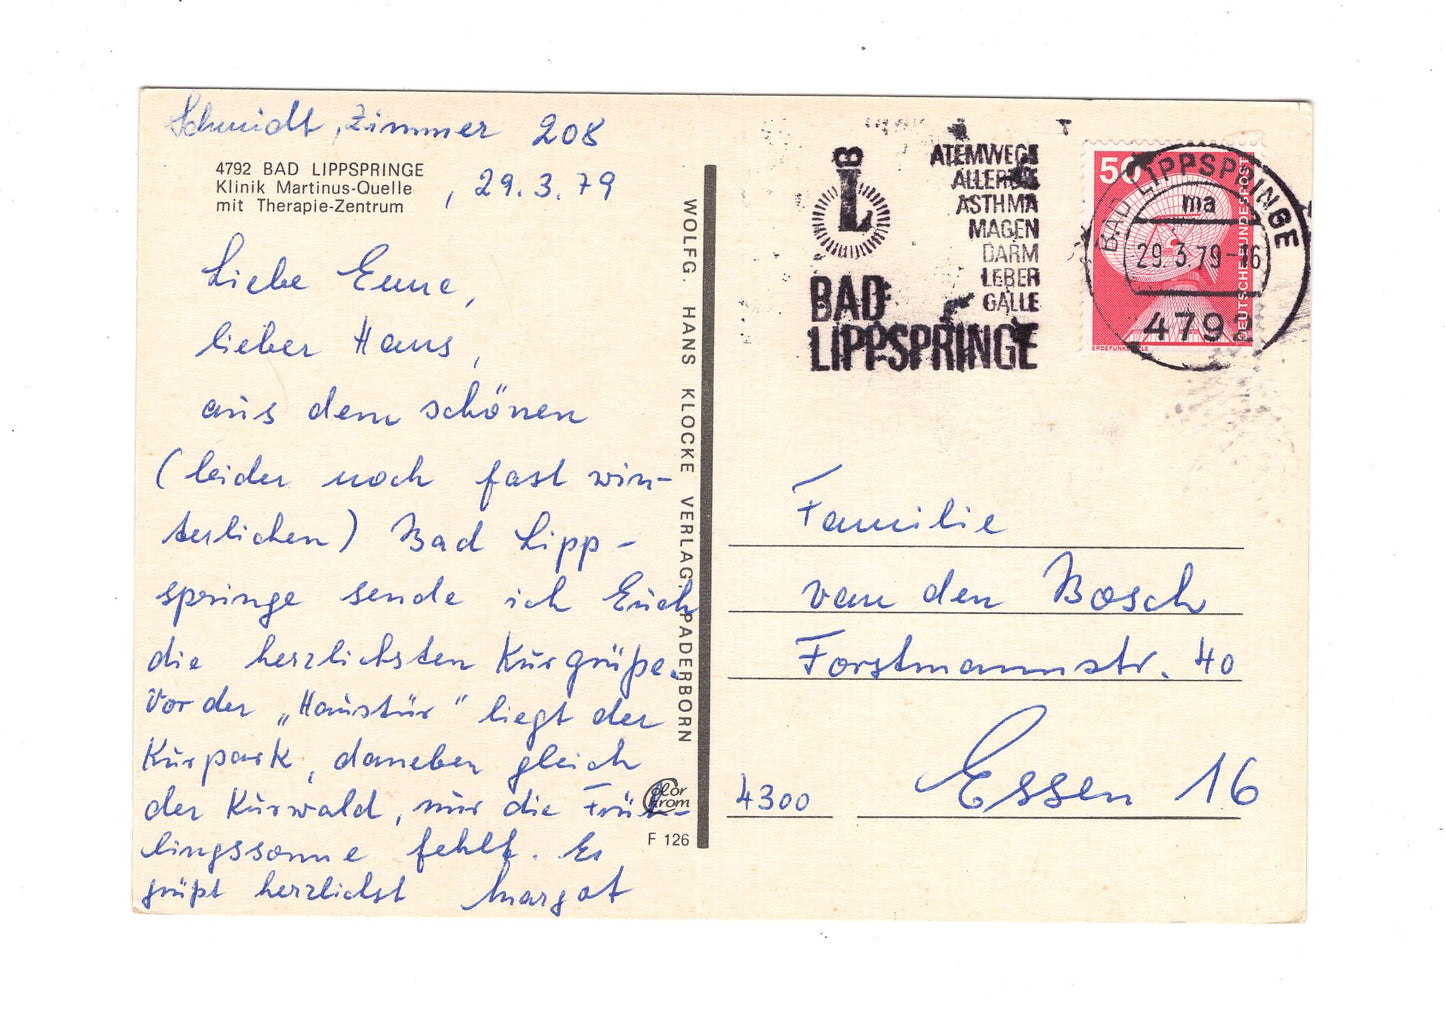 Schmidt, Zimmer 208
4792 BAD LIPPSPRINGE
Klinik Martinus-Quelle
mit Therapie-Zentrum
, 29.3.79
Liebe Enne,
lieber Hans,
aus dem schönen
(leider noch fast win-
terlichen) Bad Lipp-
springe sende ich Euch
die herzlichsten Kurgrüße.
Vor der „Haustür" liegt der
Kurpark, daneben gleich
der Kurwald, nur die Früh-
lingssonne fehlt. Es
grüßt herzlichst Margot
WOLFG. HANS KLOCKE VERLAG, PADERBORN
Color
Chrom
F 126
B
L
ATEMWEGE
ALLERGIE
ASTHMA
MAGEN
DARM
LEBER
GALLE
BAD
LIPPSPRINGE
50
DEUTSCHE BUNDESPOST
ERDEFUNKSTELLE
BAD LIPPSPRINGE
ma
29.3.79-16
4792
Familie
van den Bosch
Forstmannstr. 40
4300 Essen 16